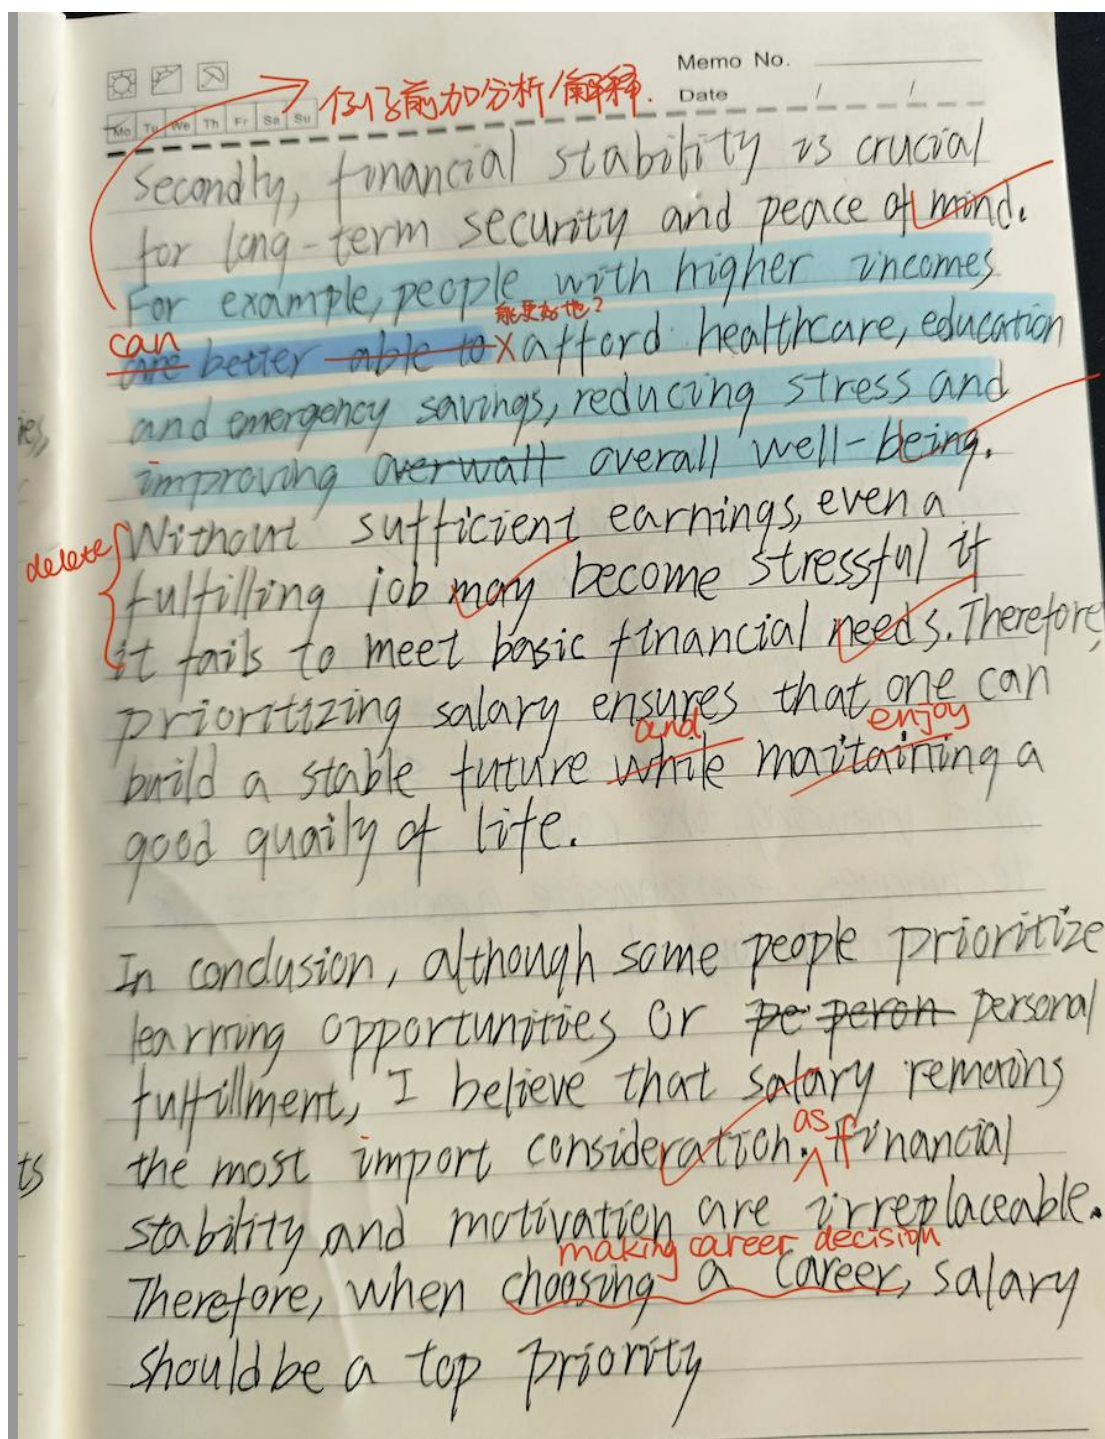 Memo No.
Date / /
Mo Tu We Th Fr Sa Su
例子前加分析/解释.
Secondly, financial stability is crucial
for long-term security and peace of mind.
For example, people with higher incomes
能更好地?
can
are better able to x afford healthcare, education
and emergency savings, reducing stress and
improving overwall overall well-being.
Without sufficient earnings, even a
delete
fulfilling job may become stressful if
it fails to meet basic financial needs. Therefore,
prioritizing salary ensures that one can
and enjoy
build a stable future while maitaining a
good quaily of life.
In conclusion, although some people prioritize
learning opportunities or pe peron personal
fulfillment, I believe that salary remains
as f
the most import consideration. Financial
stability and motivation are irreplaceable.
making career decision
Therefore, when choosing a career, salary
should be a top priority
ies,
ts